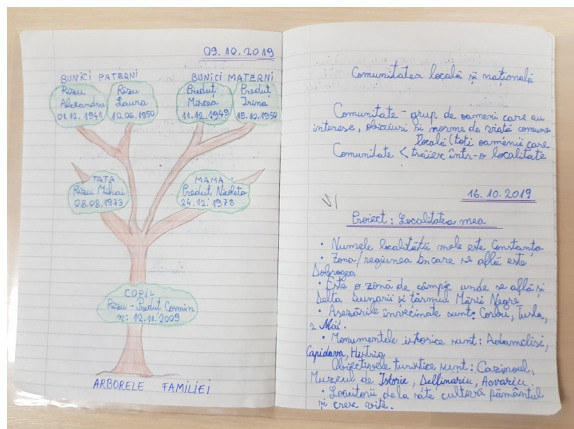 09.10.2019
BUNICI PATERNI
BUNICI MATERNI
Rizu
Alexandru
01.12.1941
Rizu
Laura
10.06.1950
Preduț
Mircea
11.12.1949
Preduț
Irina
15.10.1950
TATA
Rizu Mihai
08.08.1973
MAMA
Preduț Nicoleta
24.12.1978
COPIL
Rizu - Preduț Cosmin
n: 12.11.2009
ARBORELE FAMILIEI
Comunitatea locală și națională
Comunitate - grup de oameni care au
interese, obiceiuri și norme de viață comune
locală (toți oamenii care
Comunitate < trăiesc într-o localitate
16.10.2019
Proiect: Localitatea mea
• Numele localității mele este Constanța
• Zona/regiunea în care se află este
Dobrogea
• Este o zonă de câmpie unde se află și
Delta Dunării și țărmul Mării Negre.
• Așezările învecinate sunt: Corbu,
2 Mai.
• Monumentele istorice sunt: Adamclisi,
Capidava, Histria
Obiectivele turistice sunt: Cazinoul,
Muzeul de Istorie, Delfinariu, Acvariu.
• Locuitorii de la sate cultivă pământul
și cresc vite.